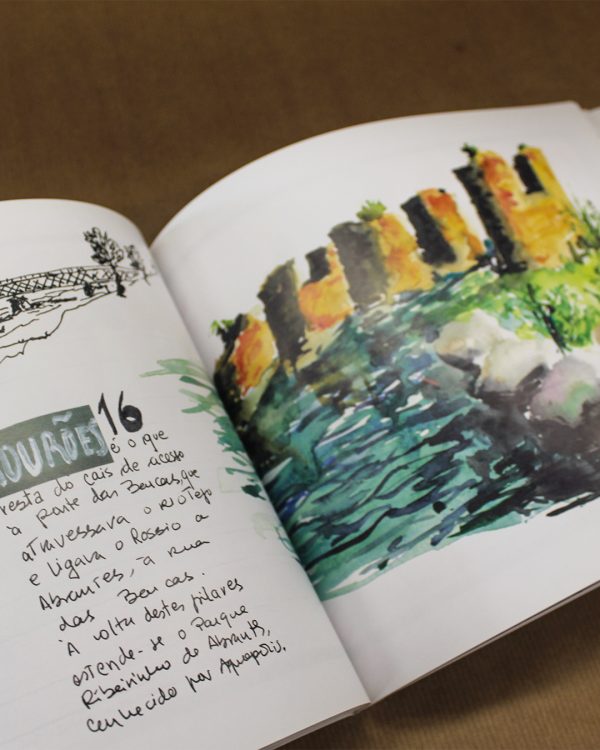 MOURÕES 16
é o que
resta do cais de acesso
à ponte das Barcas, que
atravessava o rio Tejo
e ligava o Rossio a
Abrantes, à rua
das Barcas.
À volta destes pilares
estende-se o Parque
Ribeirinho de Abrantes,
conhecido por Aquapolis.